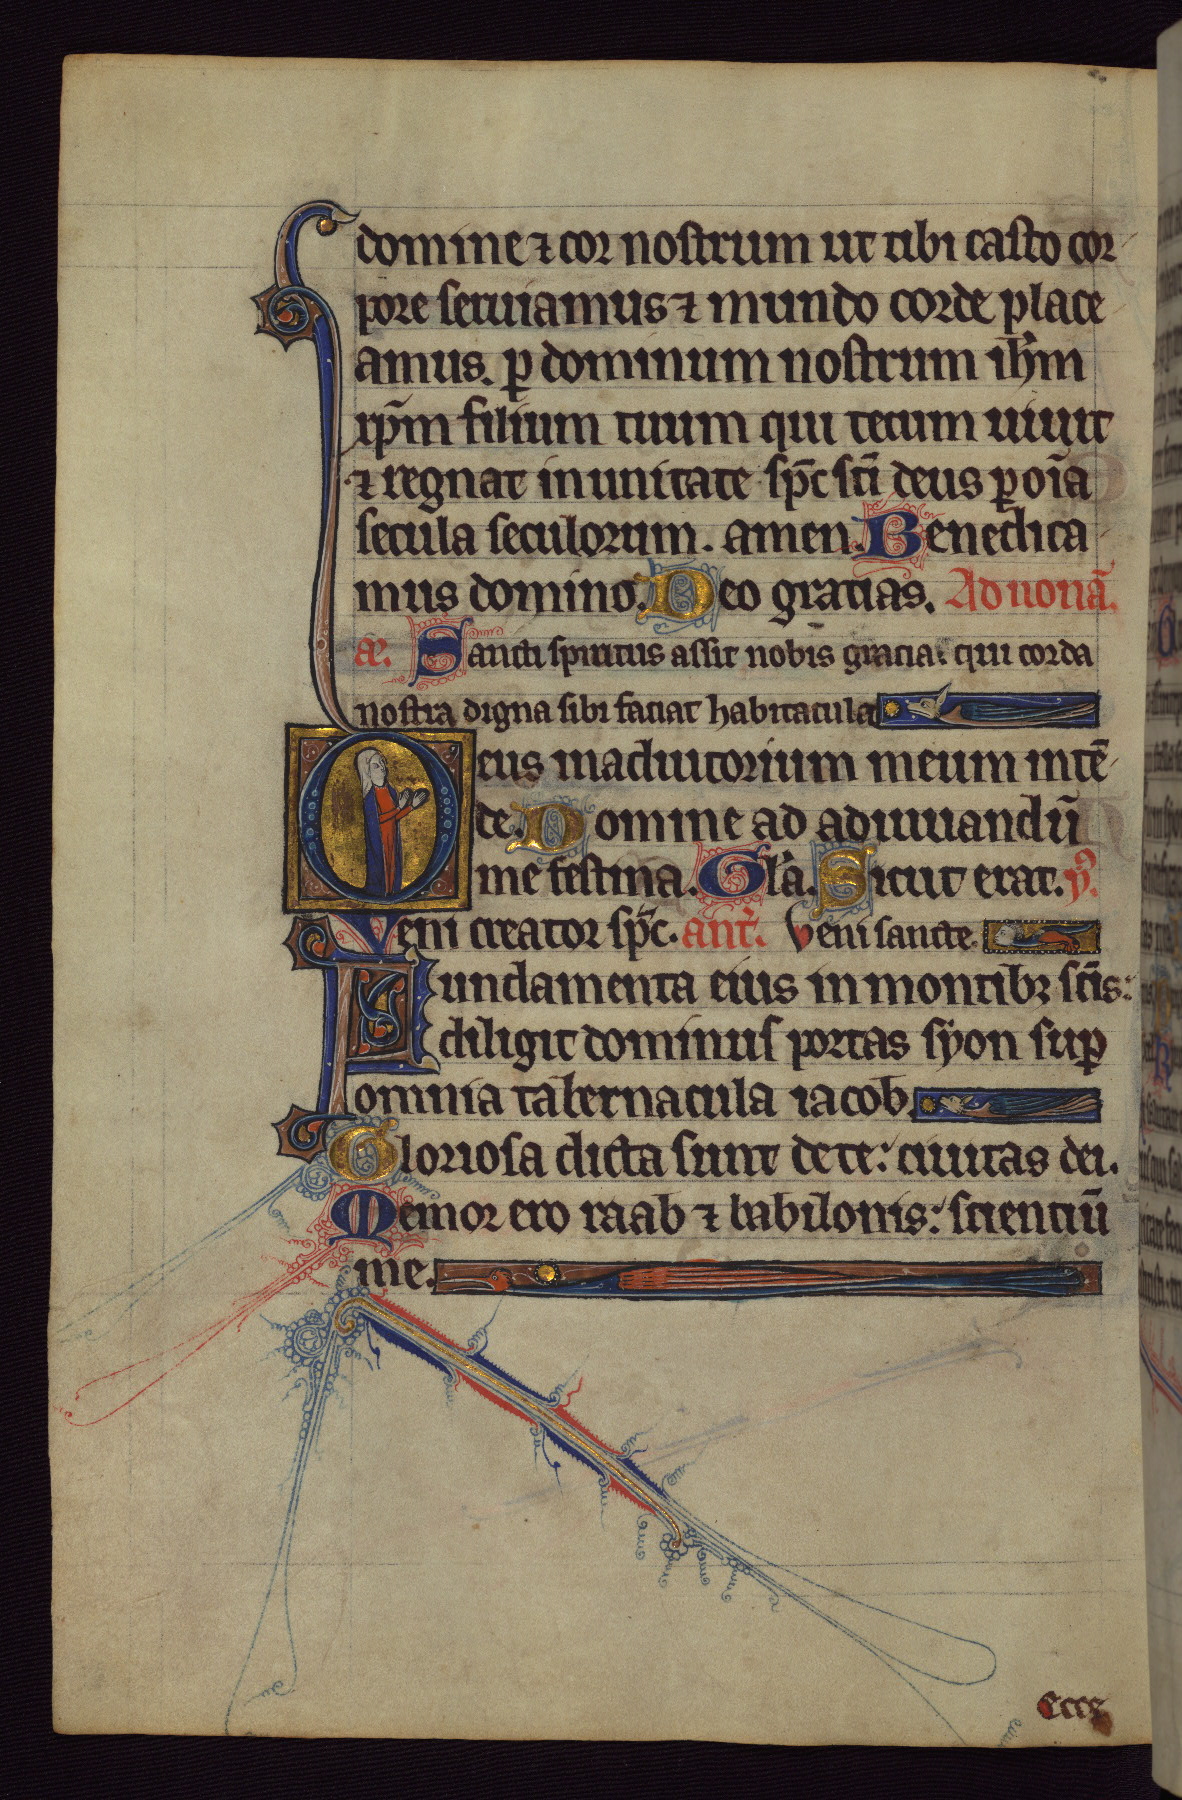 domine ⁊ cor nostrum ut tibi casto cor
pore seruiamus ⁊ mundo corde place
amus. ꝑ dominum nostrum ih̅m
xp̅m filium tuum qui tecum uiuit
⁊ regnat in unitate sp̅c sc̅i deus ꝑ oi̅a
secula seculorum. amen. Benedica
mus domino. Deo gratias. Ad nonā.
Sancti spiritus assit nobis gracia: qui corda
nostra digna sibi faciat habitacula
Deus inadiutorium meum intē
de. Domine ad adiuuandū
me festina. Gl̅a. Sicut erat. y̅.
Veni creator sp̅c. ant̅. Veni sancte.
Fundamenta eius in montibꝫ sc̅is:
diligit dominus portas syon suꝑ
omnia tabernacula iacob.
Gloriosa dicta sunt de te: ciuitas dei.
Memor ero raab ⁊ babilonis: scientiū
me.
Ecce